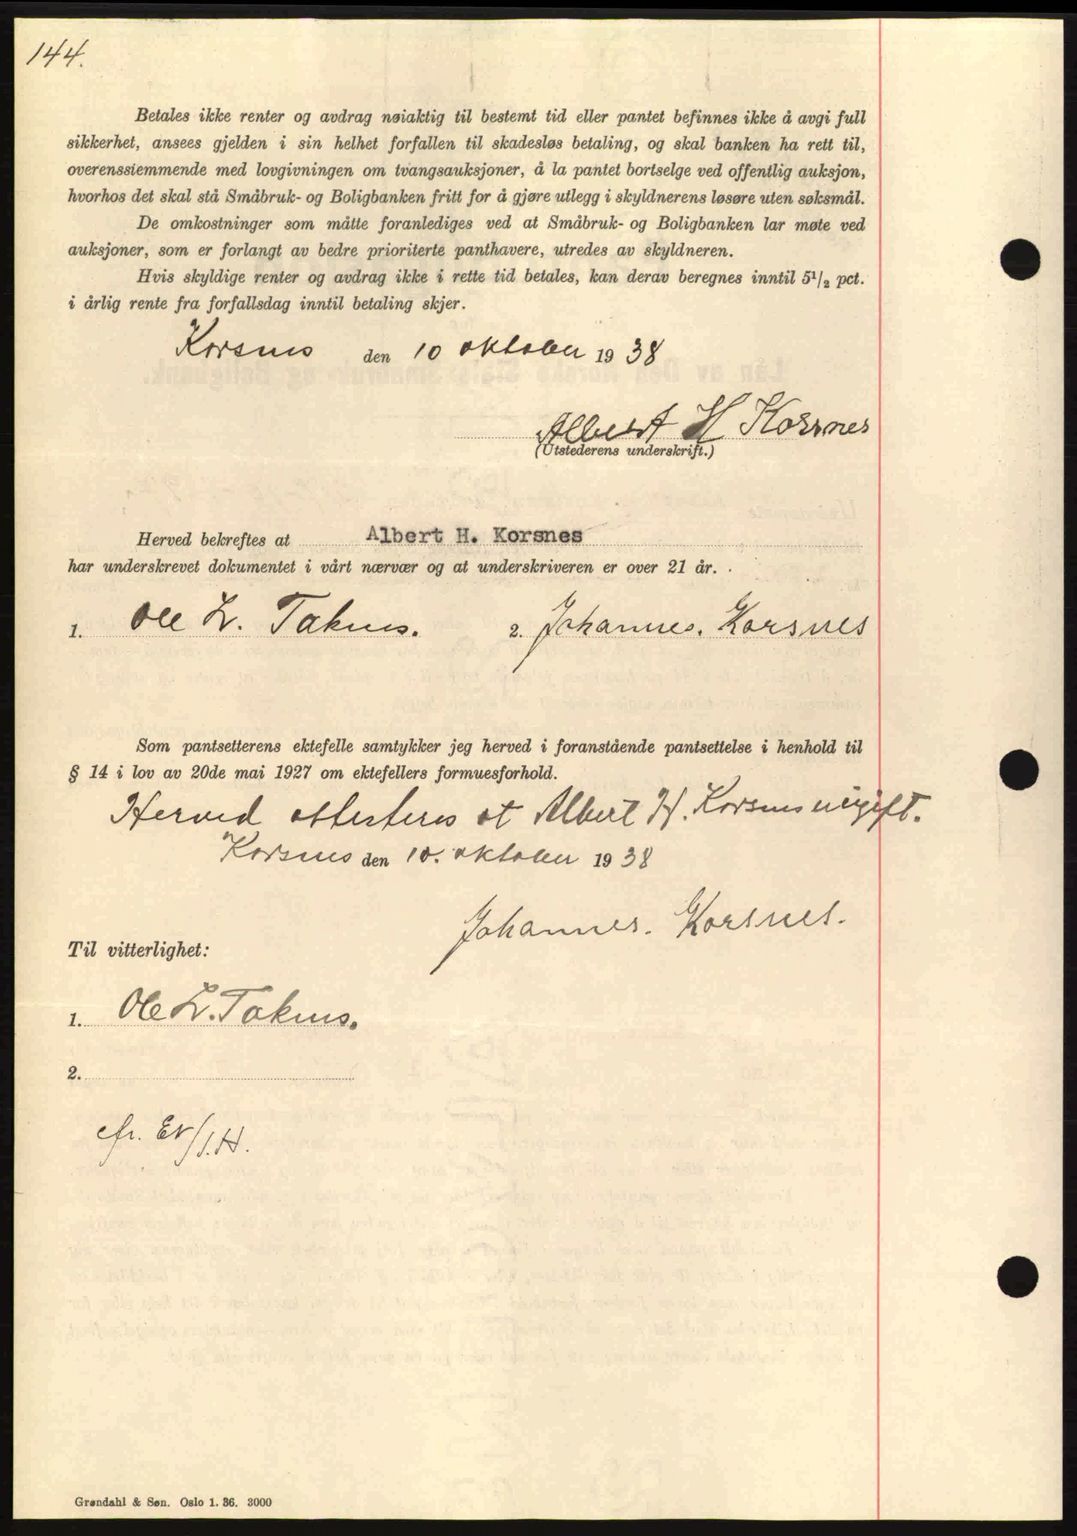 144.
Betales ikke renter og avdrag nøiaktig til bestemt tid eller pantet befinnes ikke å avgi full
sikkerhet, ansees gjelden i sin helhet forfallen til skadesløs betaling, og skal banken ha rett til,
overenssiemmende med lovgivningen om tvangsauksjoner, å la pantet bortselge ved offentlig auksjon,
hvorhos det skal stå Småbruk- og Boligbanken fritt for å gjøre utlegg i skyldnerens løsøre uten søksmål.
De omkostninger som måtte foranlediges ved at Småbruk- og Boligbanken lar møte ved
auksjoner, som er forlangt av bedre prioriterte panthavere, utredes av skyldneren.
Hvis skyldige renter og avdrag ikke i rette tid betales, kan derav beregnes inntil 5 1/2 pct.
i årlig rente fra forfallsdag inntil betaling skjer.
Korsnes den 10 oktober 1938
Albert H Korsnes
(Utstederens underskrift.)
Herved bekreftes at Albert H. Korsnes
har underskrevet dokumentet i vårt nærvær og at underskriveren er over 21 år.
1. Ole L. Taknes. 2. Johannes. Korsnes
Som pantsetterens ektefelle samtykker jeg herved i foranstående pantsettelse i henhold til
§ 14 i lov av 20de mai 1927 om ektefellers formuesforhold.
Herved attesteres at Albert H. Korsnes er ugift.
Korsnes den 10. oktober 1938
Johannes. Korsnes.
Til vitterlighet:
1. Ole L. Taknes.
2.
cfr.
Grøndahl & Søn. Oslo 1. 36. 3000